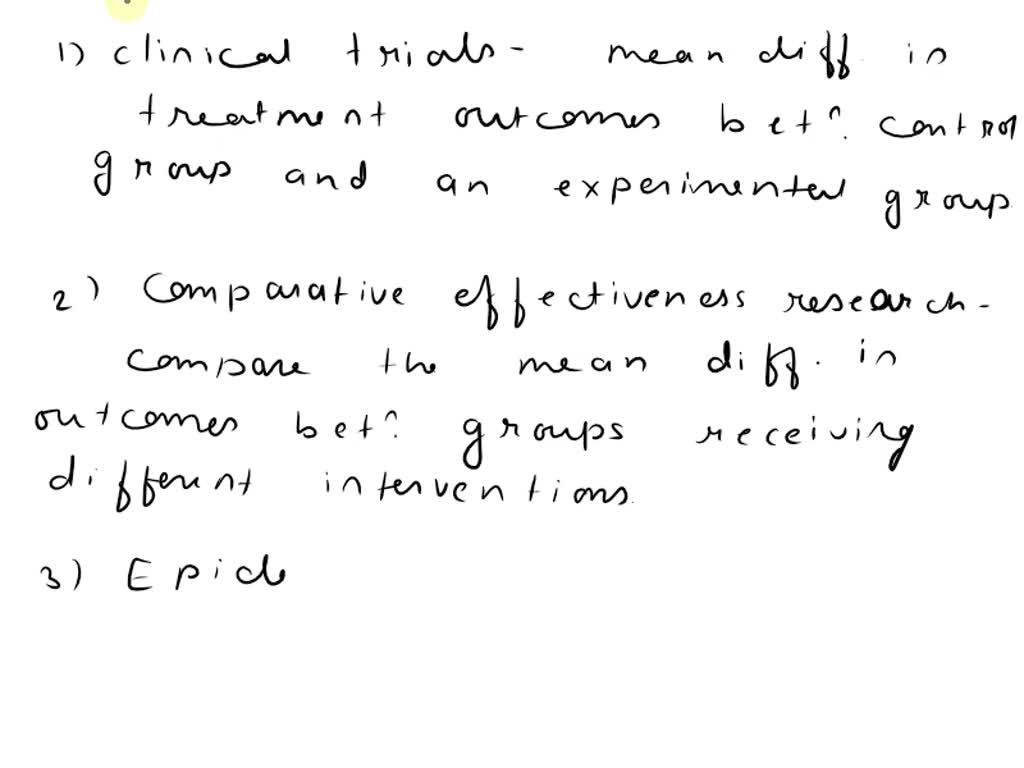 1) clinical trials - mean diff in
treatment outcomes betn. control
group and an experimental group
2) Comparative effectiveness research -
compare the mean diff. in
outcomes betn. groups receiving
different interventions.
3) Epide